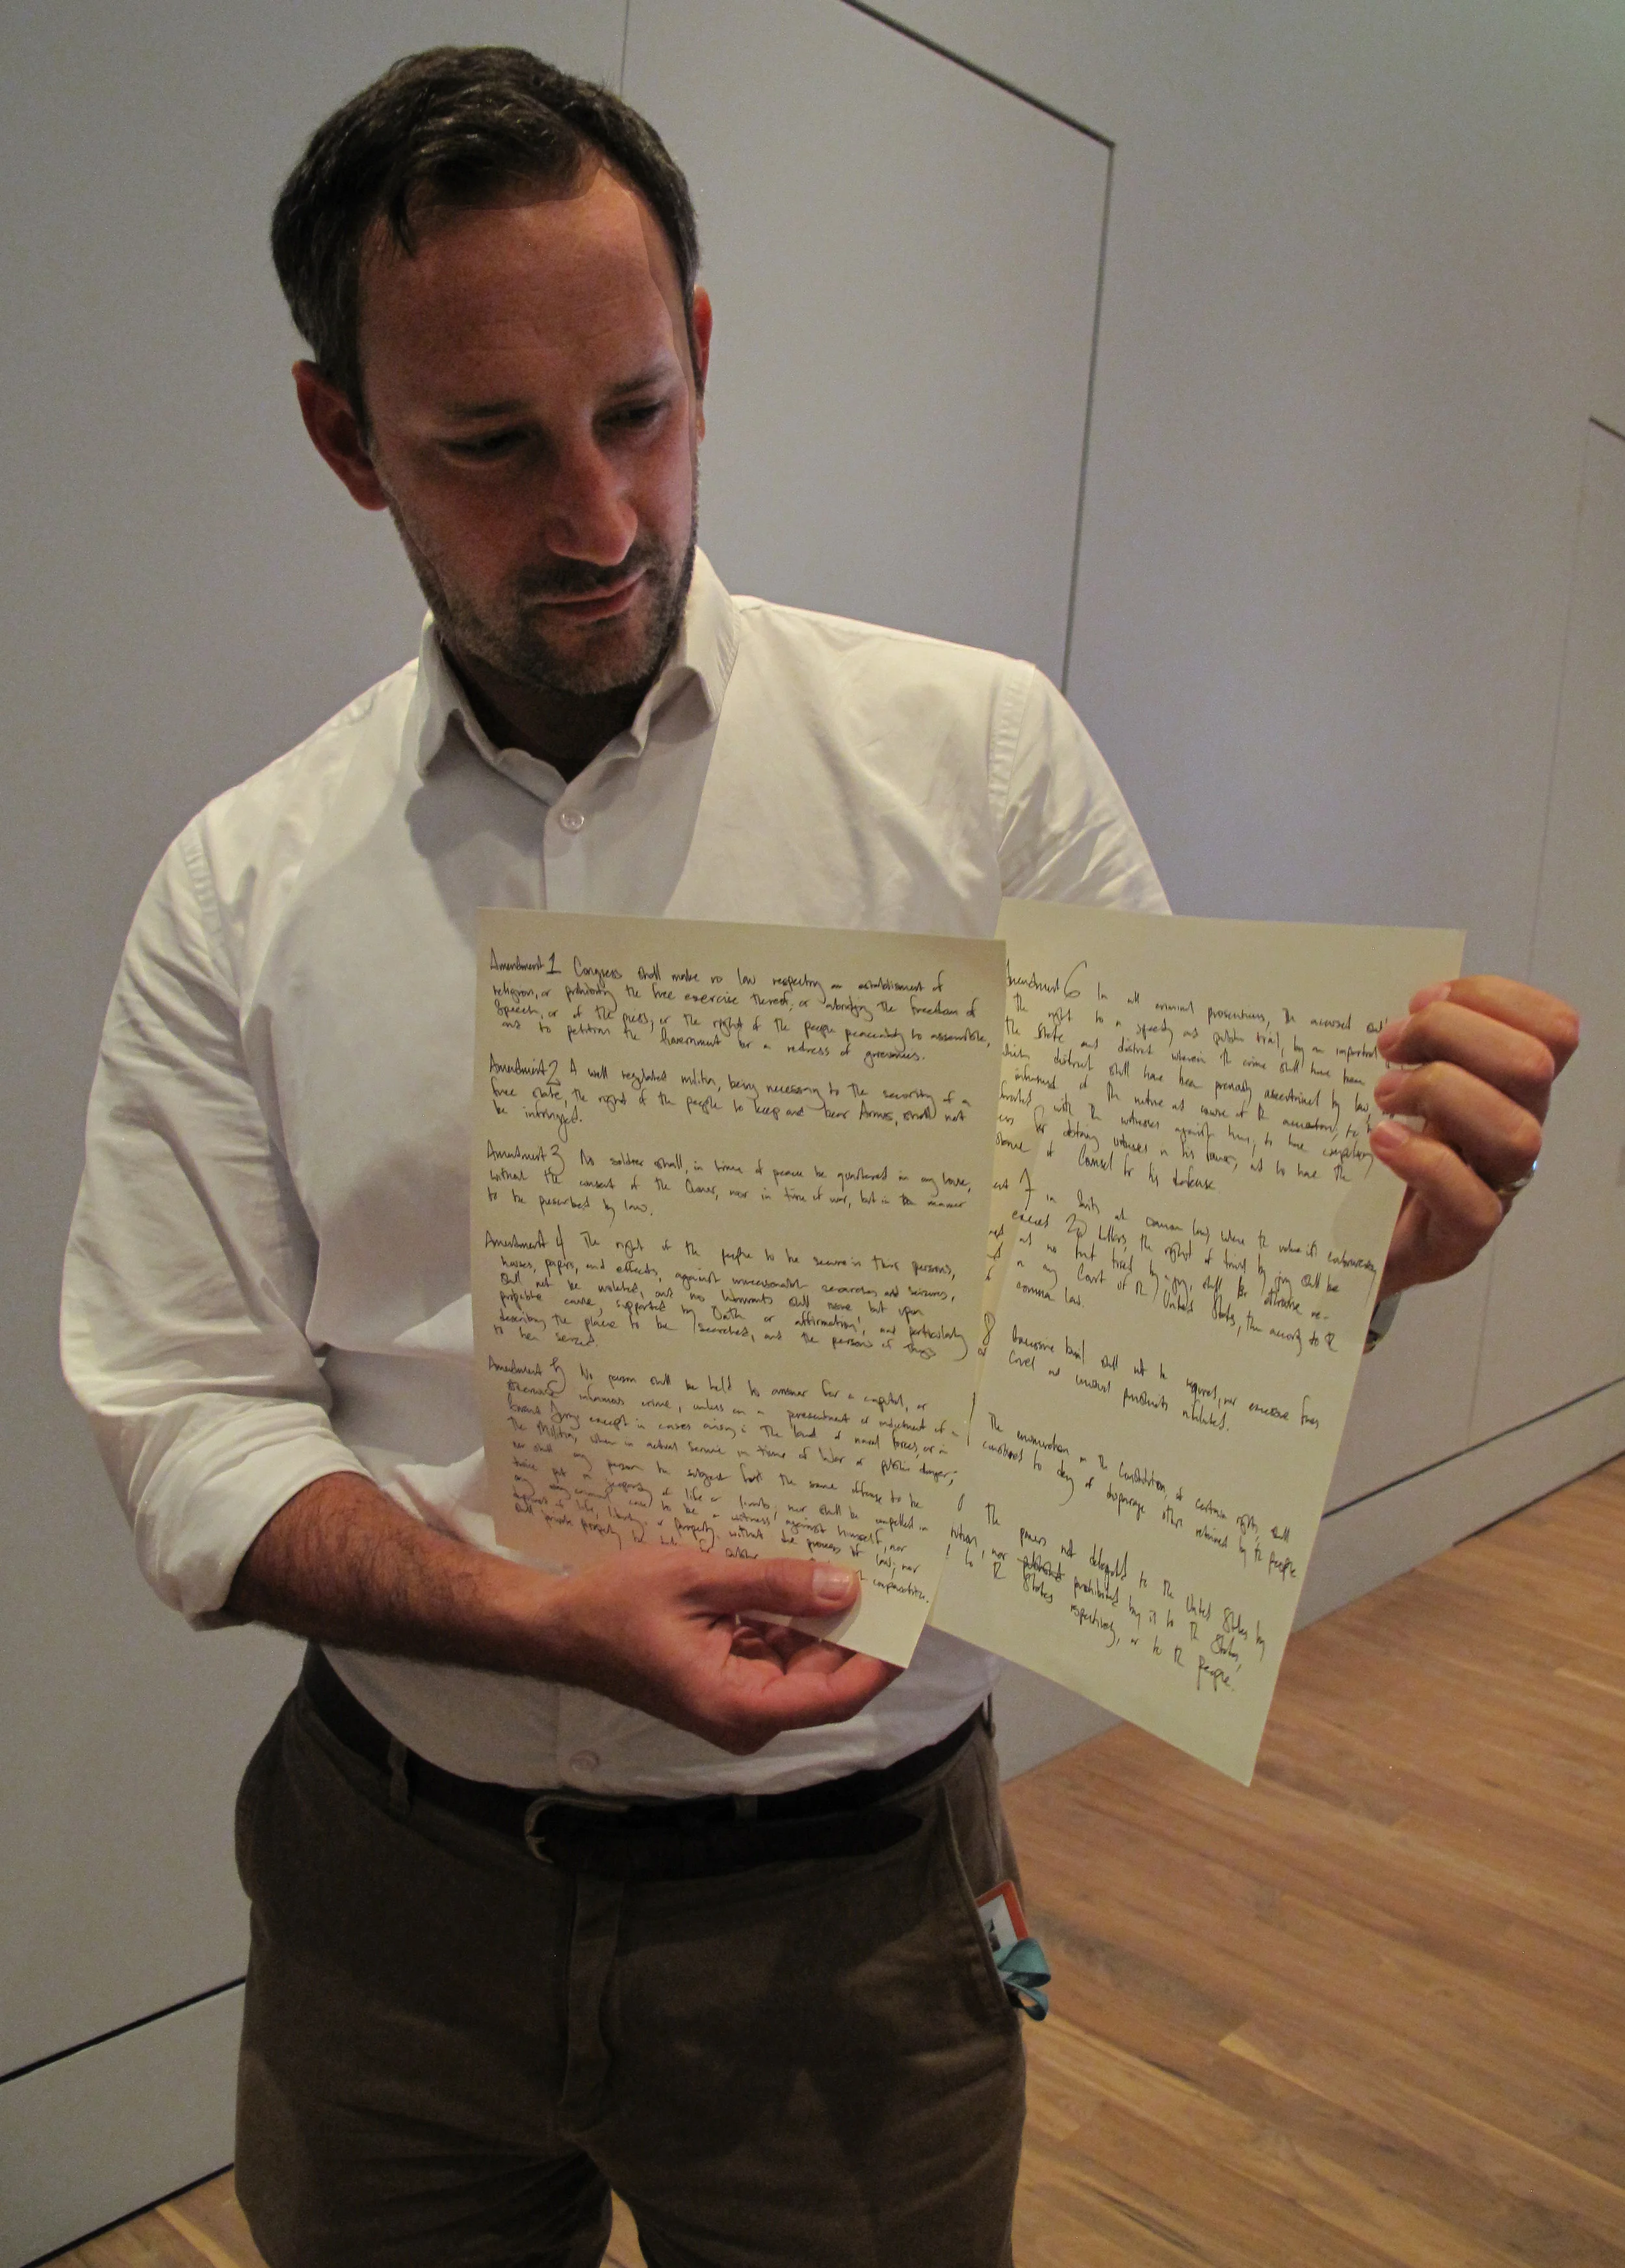 Amendment 1 Congress shall make no law respecting an establishment of
religion, or prohibiting the free exercise thereof; or abridging the freedom of
Speech, or of the press; or the right of the people peaceably to assemble,
and to petition the Government for a redress of grievances.
Amendment 2 A well regulated militia, being necessary to the security of a
free state, the right of the people to keep and bear Arms, shall not
be infringed.
Amendment 3 No soldier shall, in time of peace be quartered in any house,
without the consent of the Owner, nor in time of war, but in the manner
to be prescribed by law.
Amendment 4 The right of the people to be secure in their persons,
houses, papers, and effects, against unreasonable searches and seizures,
shall not be violated, and no Warrants shall issue but upon
probable cause, supported by Oath or affirmation, and particularly
describing the place to be searched, and the persons or things
to be seized.
Amendment 5 No person shall be held to answer for a capital, or
otherwise infamous crime, unless on a presentment or indictment of a
Grand Jury except in cases arising in the land or naval forces, or in
the Militia, when in actual service in time of War or public danger;
nor shall any person be subject for the same offense to be
twice put in jeopardy of life or limb; nor shall be compelled in
any criminal case to be a witness against himself, nor
deprived of life, liberty, or property, without due process of law; nor
shall private property be taken for public
compensation.
Amendment 6 In all criminal prosecutions, the accused shall
the right to a speedy and public trial, by an impartial
the State and district wherein the crime shall have been
which district shall have been previously ascertained by law,
informed of the nature and cause of the accusation; to be
with the witnesses against him; to have compulsory
for obtaining witnesses in his favor, and to have the
of Counsel for his defense
7 in Suits at common law, where the value in controversy
exceed 20 dollars, the right of trial by jury shall be
and no fact tried by a jury, shall be otherwise re-
in any Court of the United States, than according to the
common law.
8 Excessive bail shall not be required, nor excessive fines
cruel and unusual punishments inflicted.
The enumeration in the Constitution, of certain rights, shall
construed to deny or disparage others retained by the people
The powers not delegated to the United States by
nor prohibited by it to the States,
to the States respectively, or to the people.